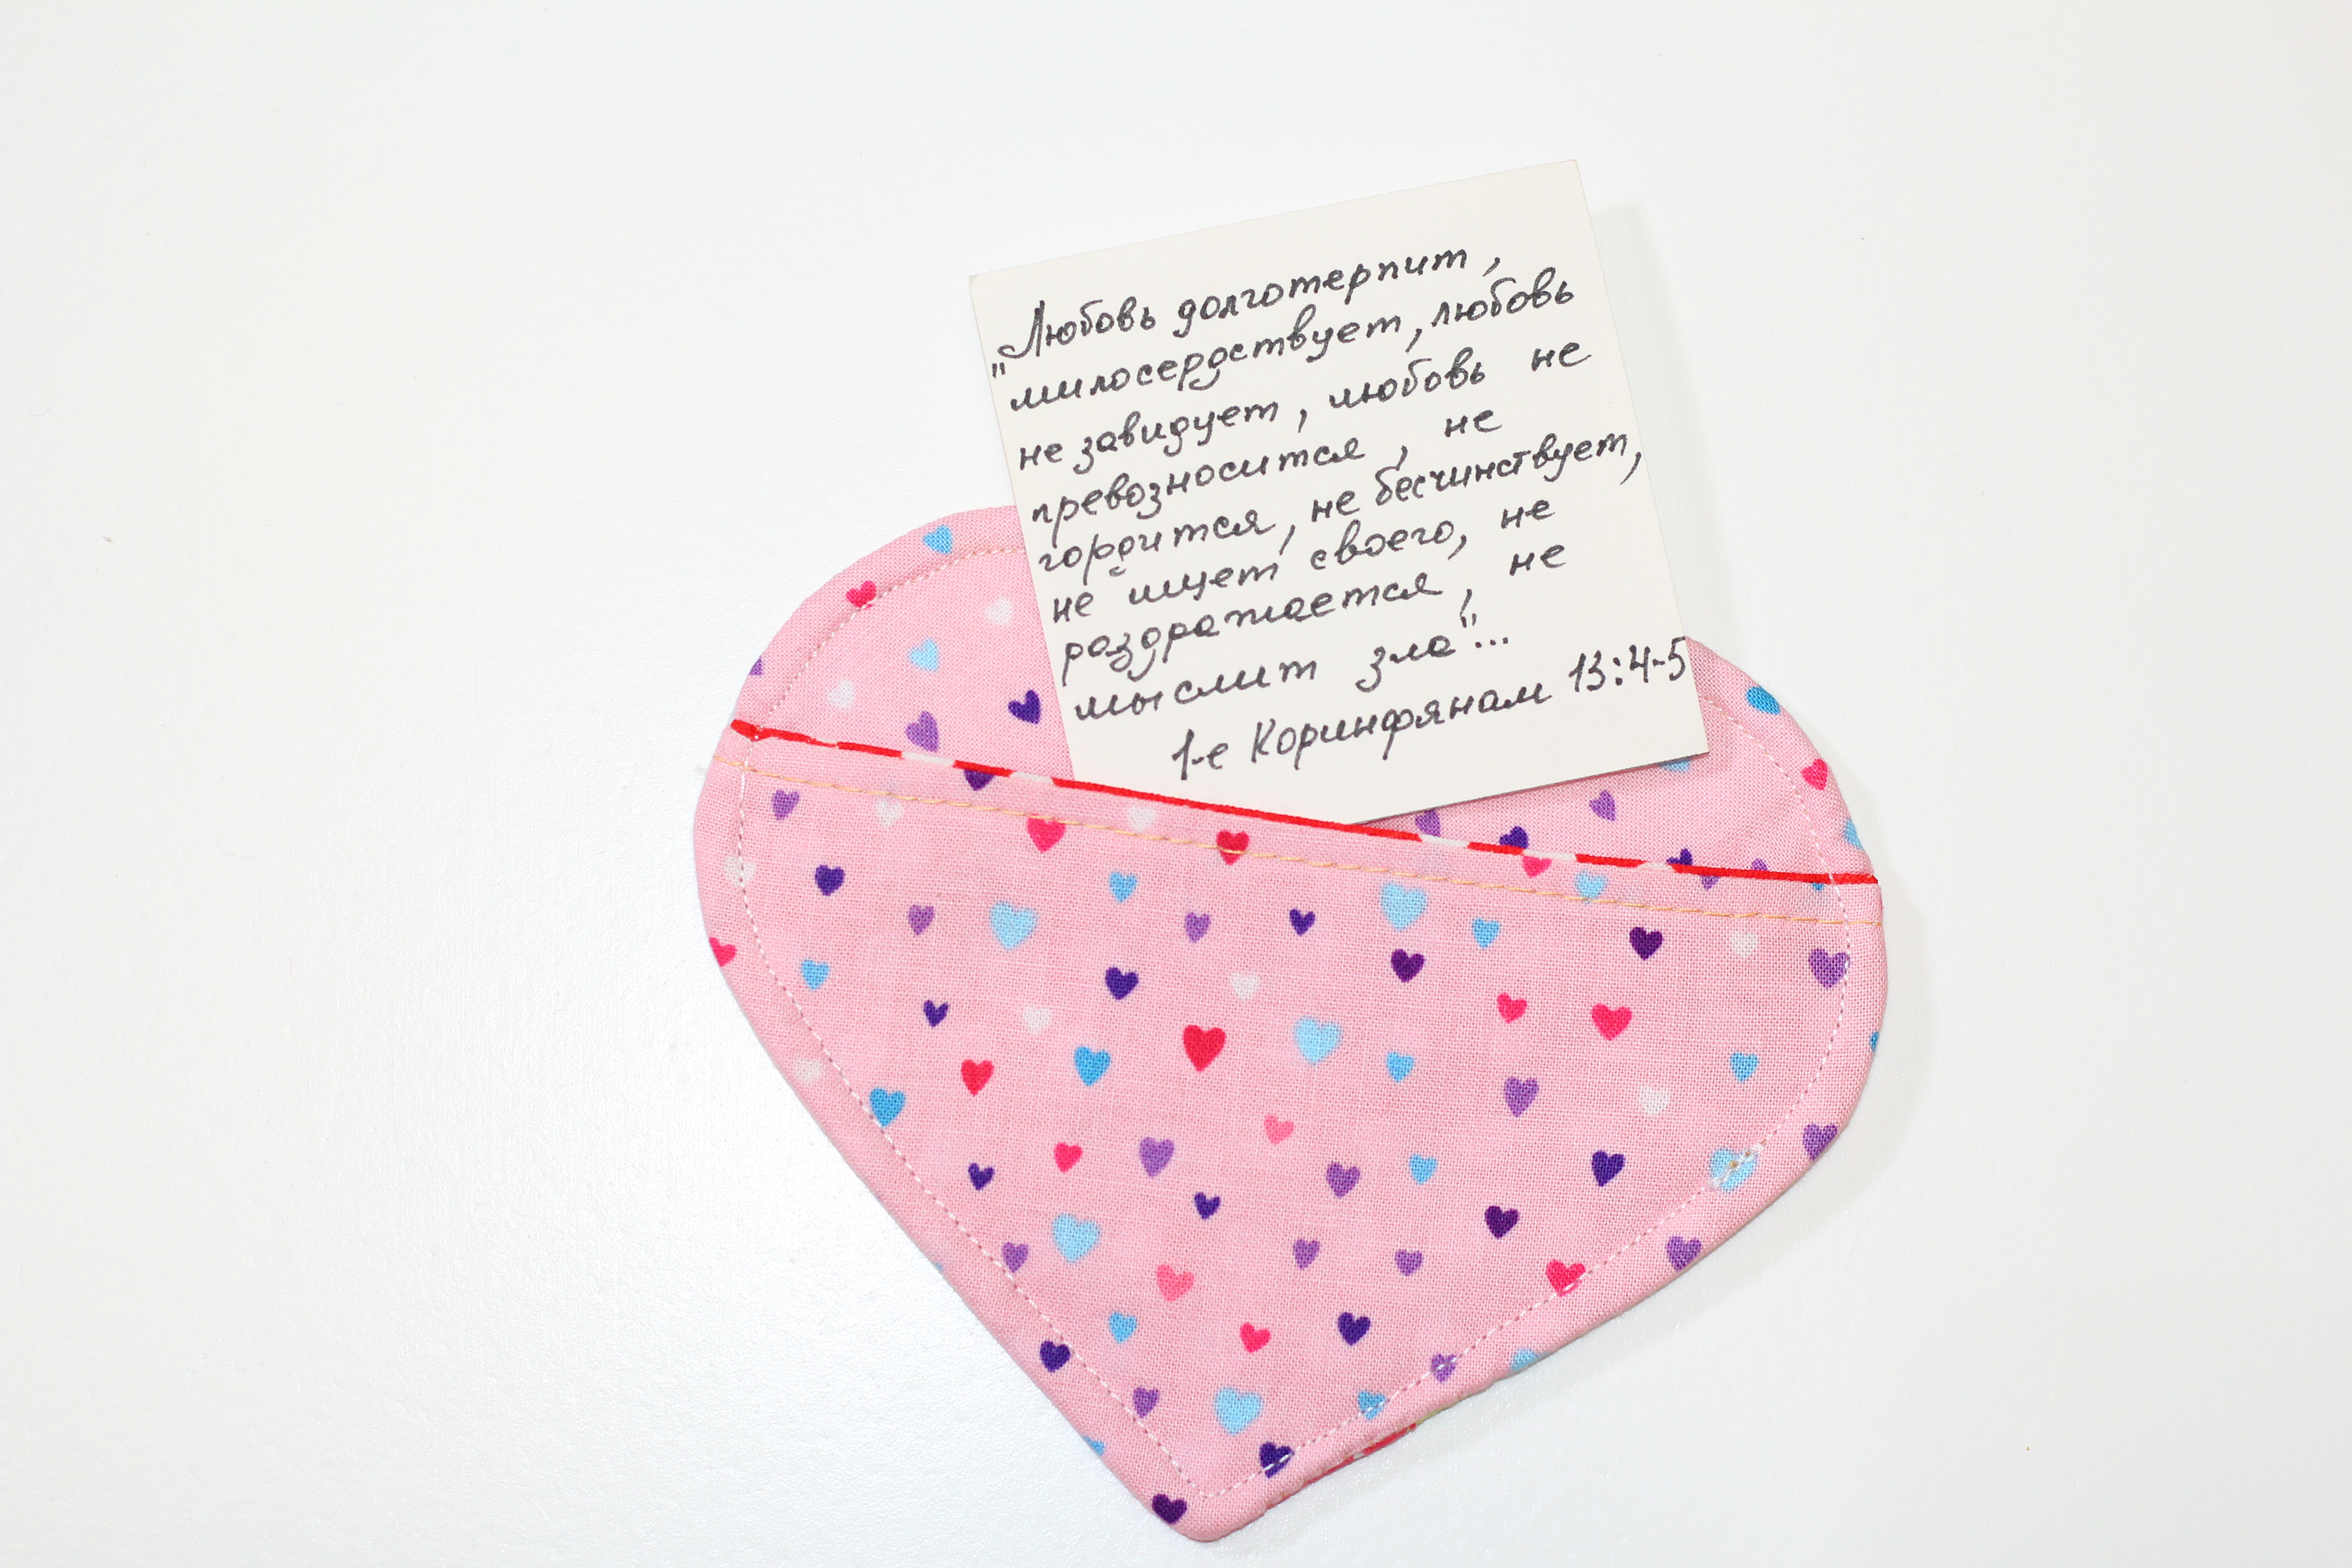 "Любовь долготерпит,
милосердствует, любовь
не завидует, любовь не
превозносится, не
гордится, не бесчинствует,
не ищет своего, не
раздражается, не
мыслит зла"...
1-е Коринфянам 13:4-5